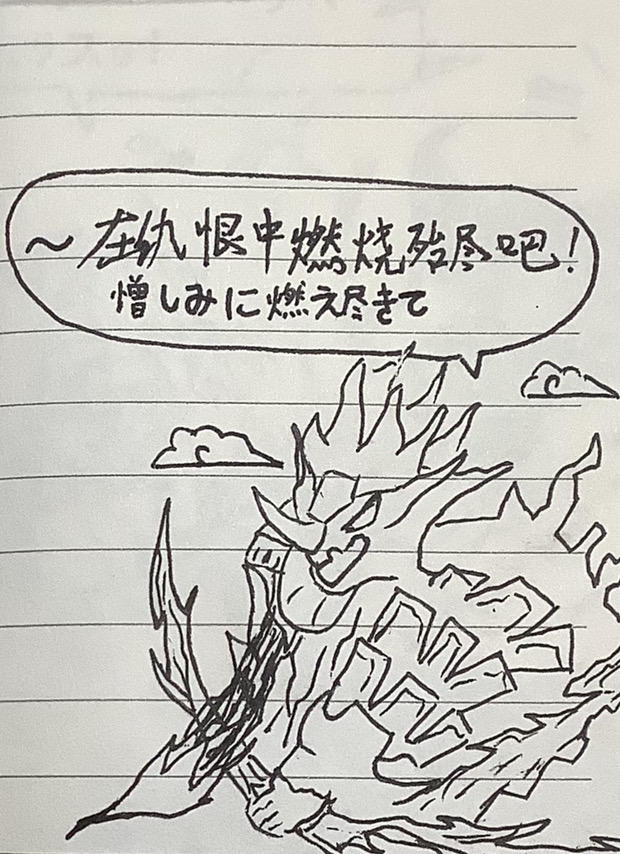 ~在仇恨中燃烧殆尽吧!
憎しみに燃え尽きて